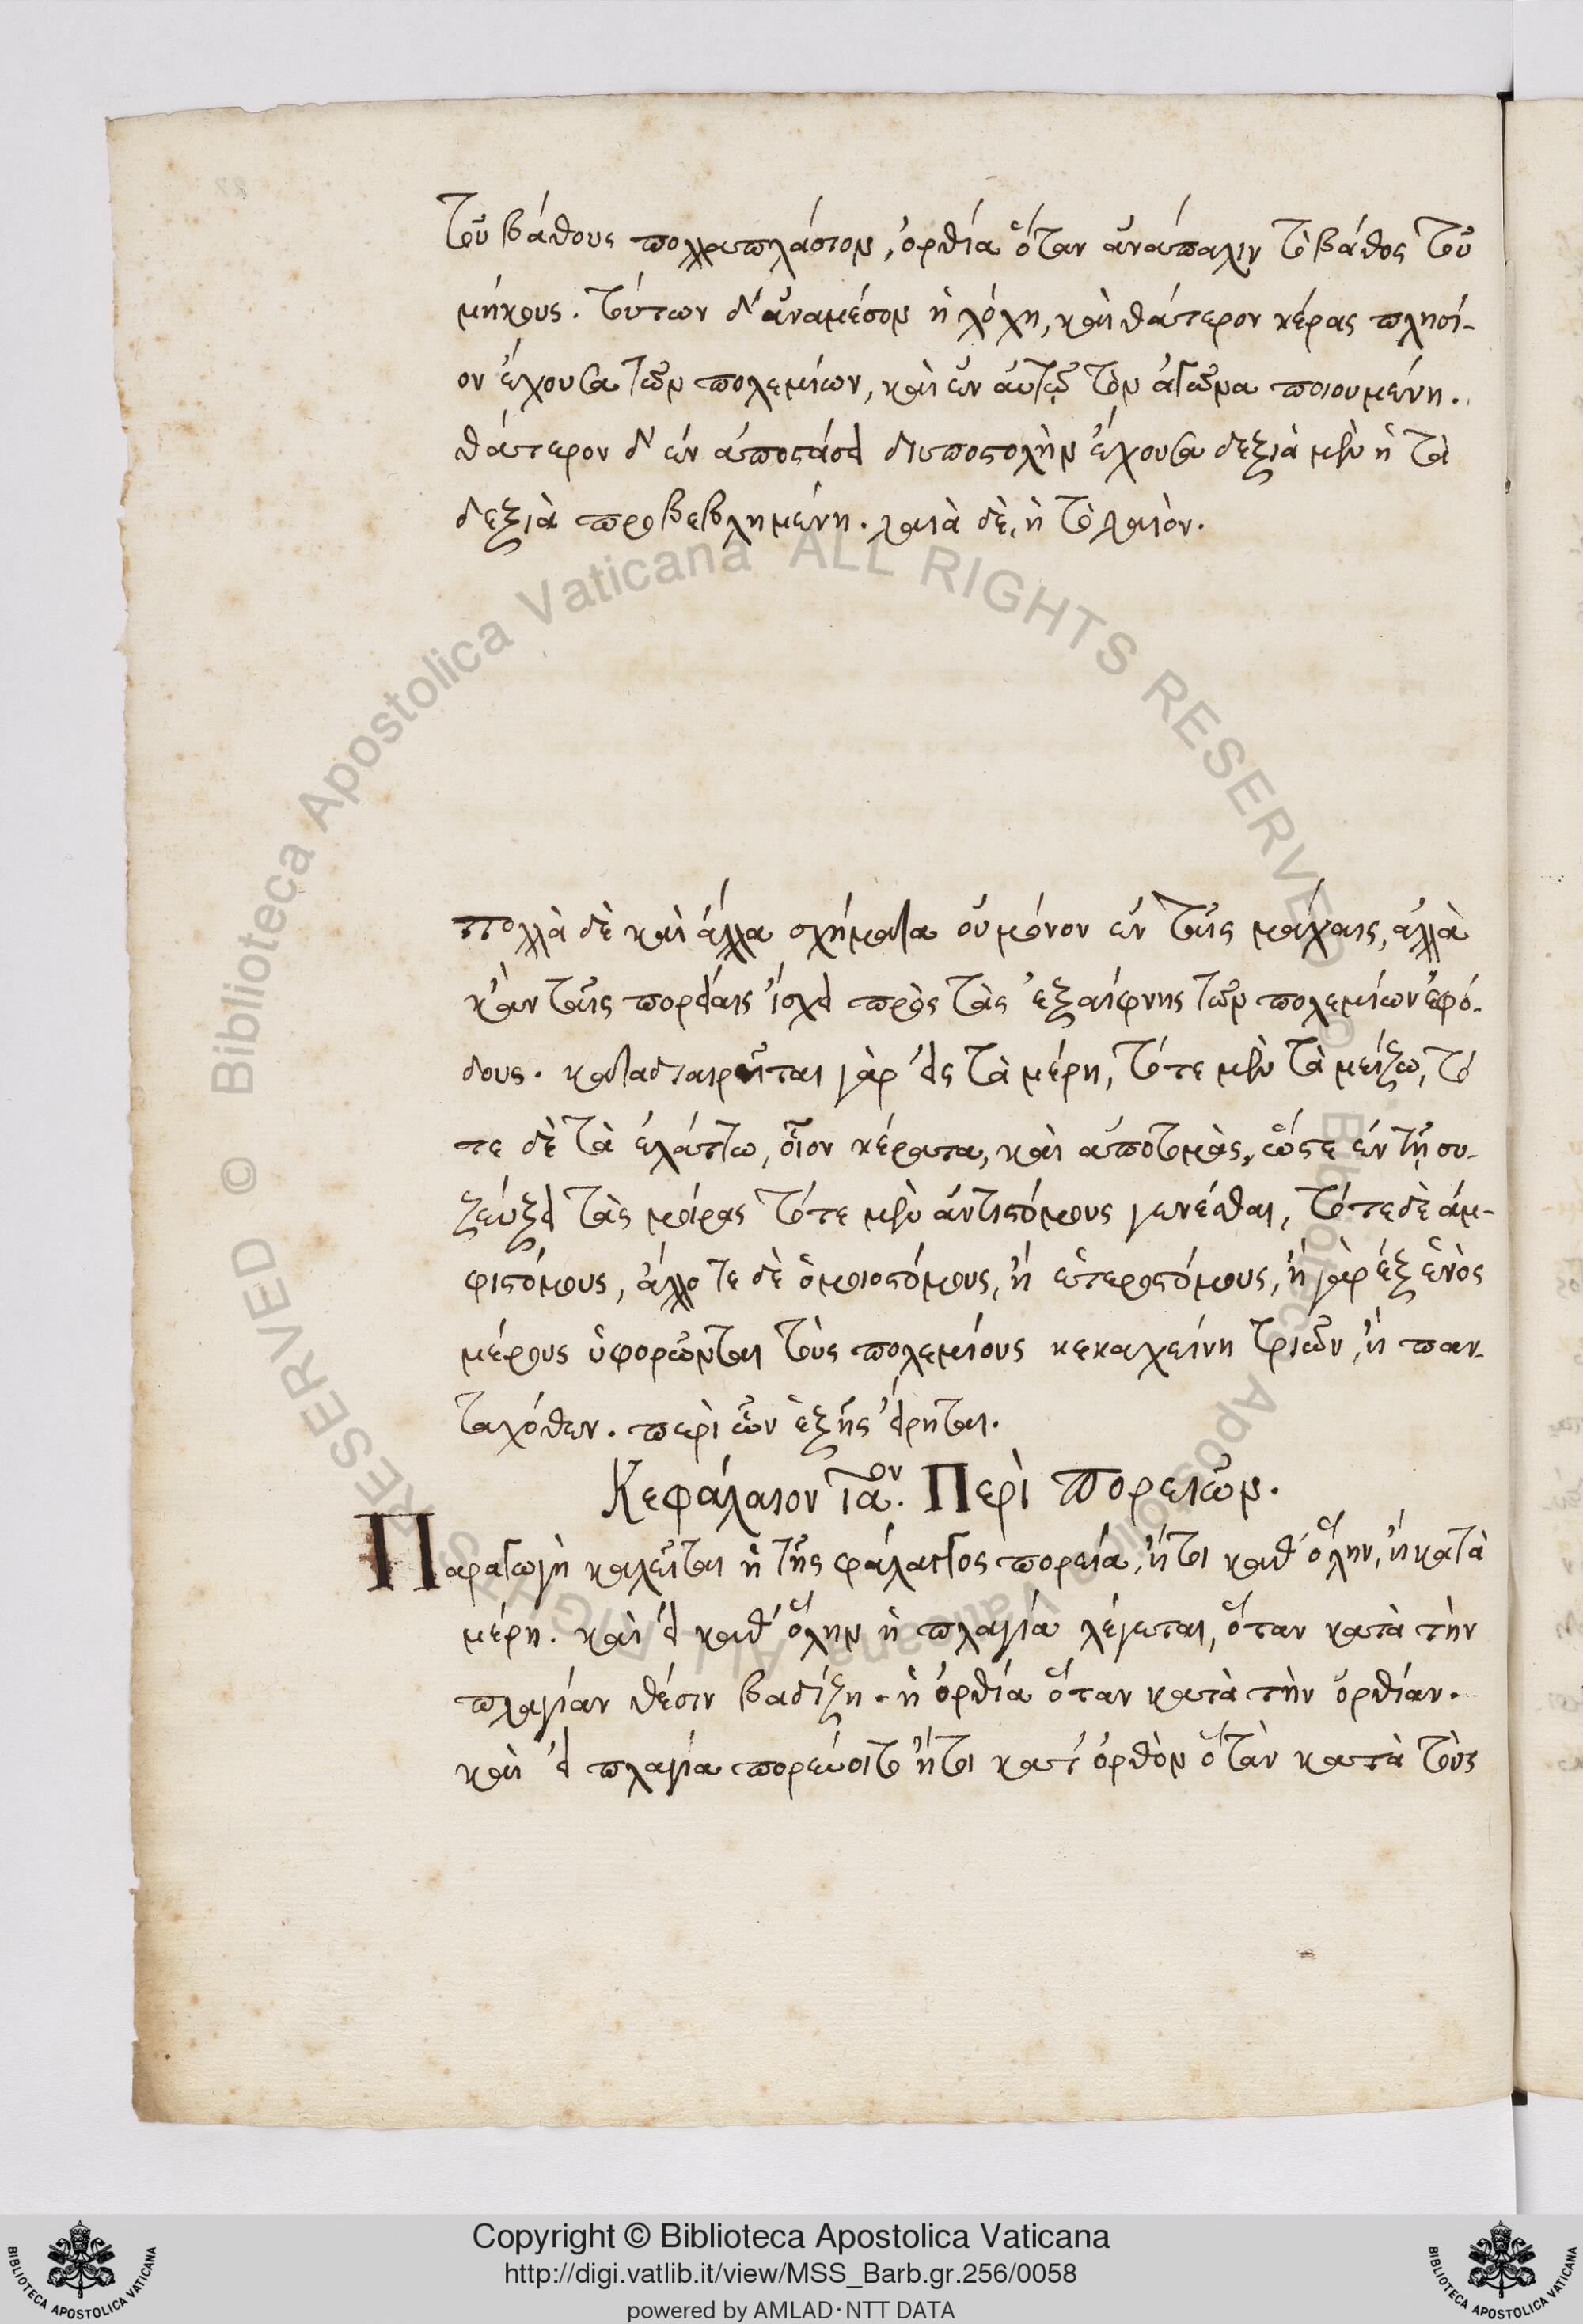 τοῦ βάθους πολλαπλάσιον, ὀρθία ὅταν ἀνάπαλιν τὸ βάθος τοῦ
μήκους. τούτων δ' ἀναμέσον ἡ λόχη, καὶ θάτερον κέρας πλησί-
ον ἔχουσα τῶν πολεμίων, καὶ ἐν αὐτῷ τὸν ἀγῶνα ποιουμένη.
θάτερον δ' ἐν ἀποστάσει δι ὑποστολὴν ἔχουσα δεξιὰ μὲν ἡ τὰ
δεξιὰ προβεβλημένη. λαιὰ δὲ, ἡ τὸ λαιόν.
πολλὰ δὲ καὶ ἄλλα σχήματα οὐ μόνον ἐν ταῖς μάχαις, ἀλλὰ
κἀν ταῖς πορείαις ἴσχει πρὸς τὰς ἐξαίφνης τῶν πολεμίων ἐφό-
δους. καταδιαιρεῖται γὰρ εἰς τὰ μέρη, τότε μὲν τὰ μείζω, τό
τε δὲ τὰ ἐλάττω, οἷον κέρατα, καὶ ἀποτομὰς, ὥστε ἐν τῇ συ-
ζεύξει τὰς μοίρας τότε μὲν ἀντιστόμους γενέσθαι, τότε δὲ ἀμ-
φιστόμους, ἄλλοτε δὲ ὁμοιοστόμους, ἢ ἑτεροστόμους, ἢ γὰρ ἐξ ἑνὸς
μέρους ὑφορῶνται τοὺς πολεμίους κεκαχείνη τριῶν, ἢ παν-
ταχόθεν. περὶ ὧν ἑξῆς εἴρηται.
Κεφάλαιον ιαον. Περὶ πορειῶν.
Παραγωγὴ καλεῖται ἡ τῆς φάλαγγος πορεία, ἤτοι καθ' ὅλην, ἢ κατὰ
μέρη. καὶ εἰ καθ' ὅλην ἡ πλαγία λέγεται, ὅταν κατὰ τὴν
πλαγίαν θέσιν βαδίζῃ. ἡ ὀρθία ὅταν κατὰ τὴν ὀρθίαν.
καὶ εἰ πλαγία πορεύοιτο ἤτοι κατ' ὀρθὸν ὅταν κατὰ τοὺς
Copyright © Biblioteca Apostolica Vaticana
http://digi.vatlib.it/view/MSS_Barb.gr.256/0058
powered by AMLAD·NTT DATA